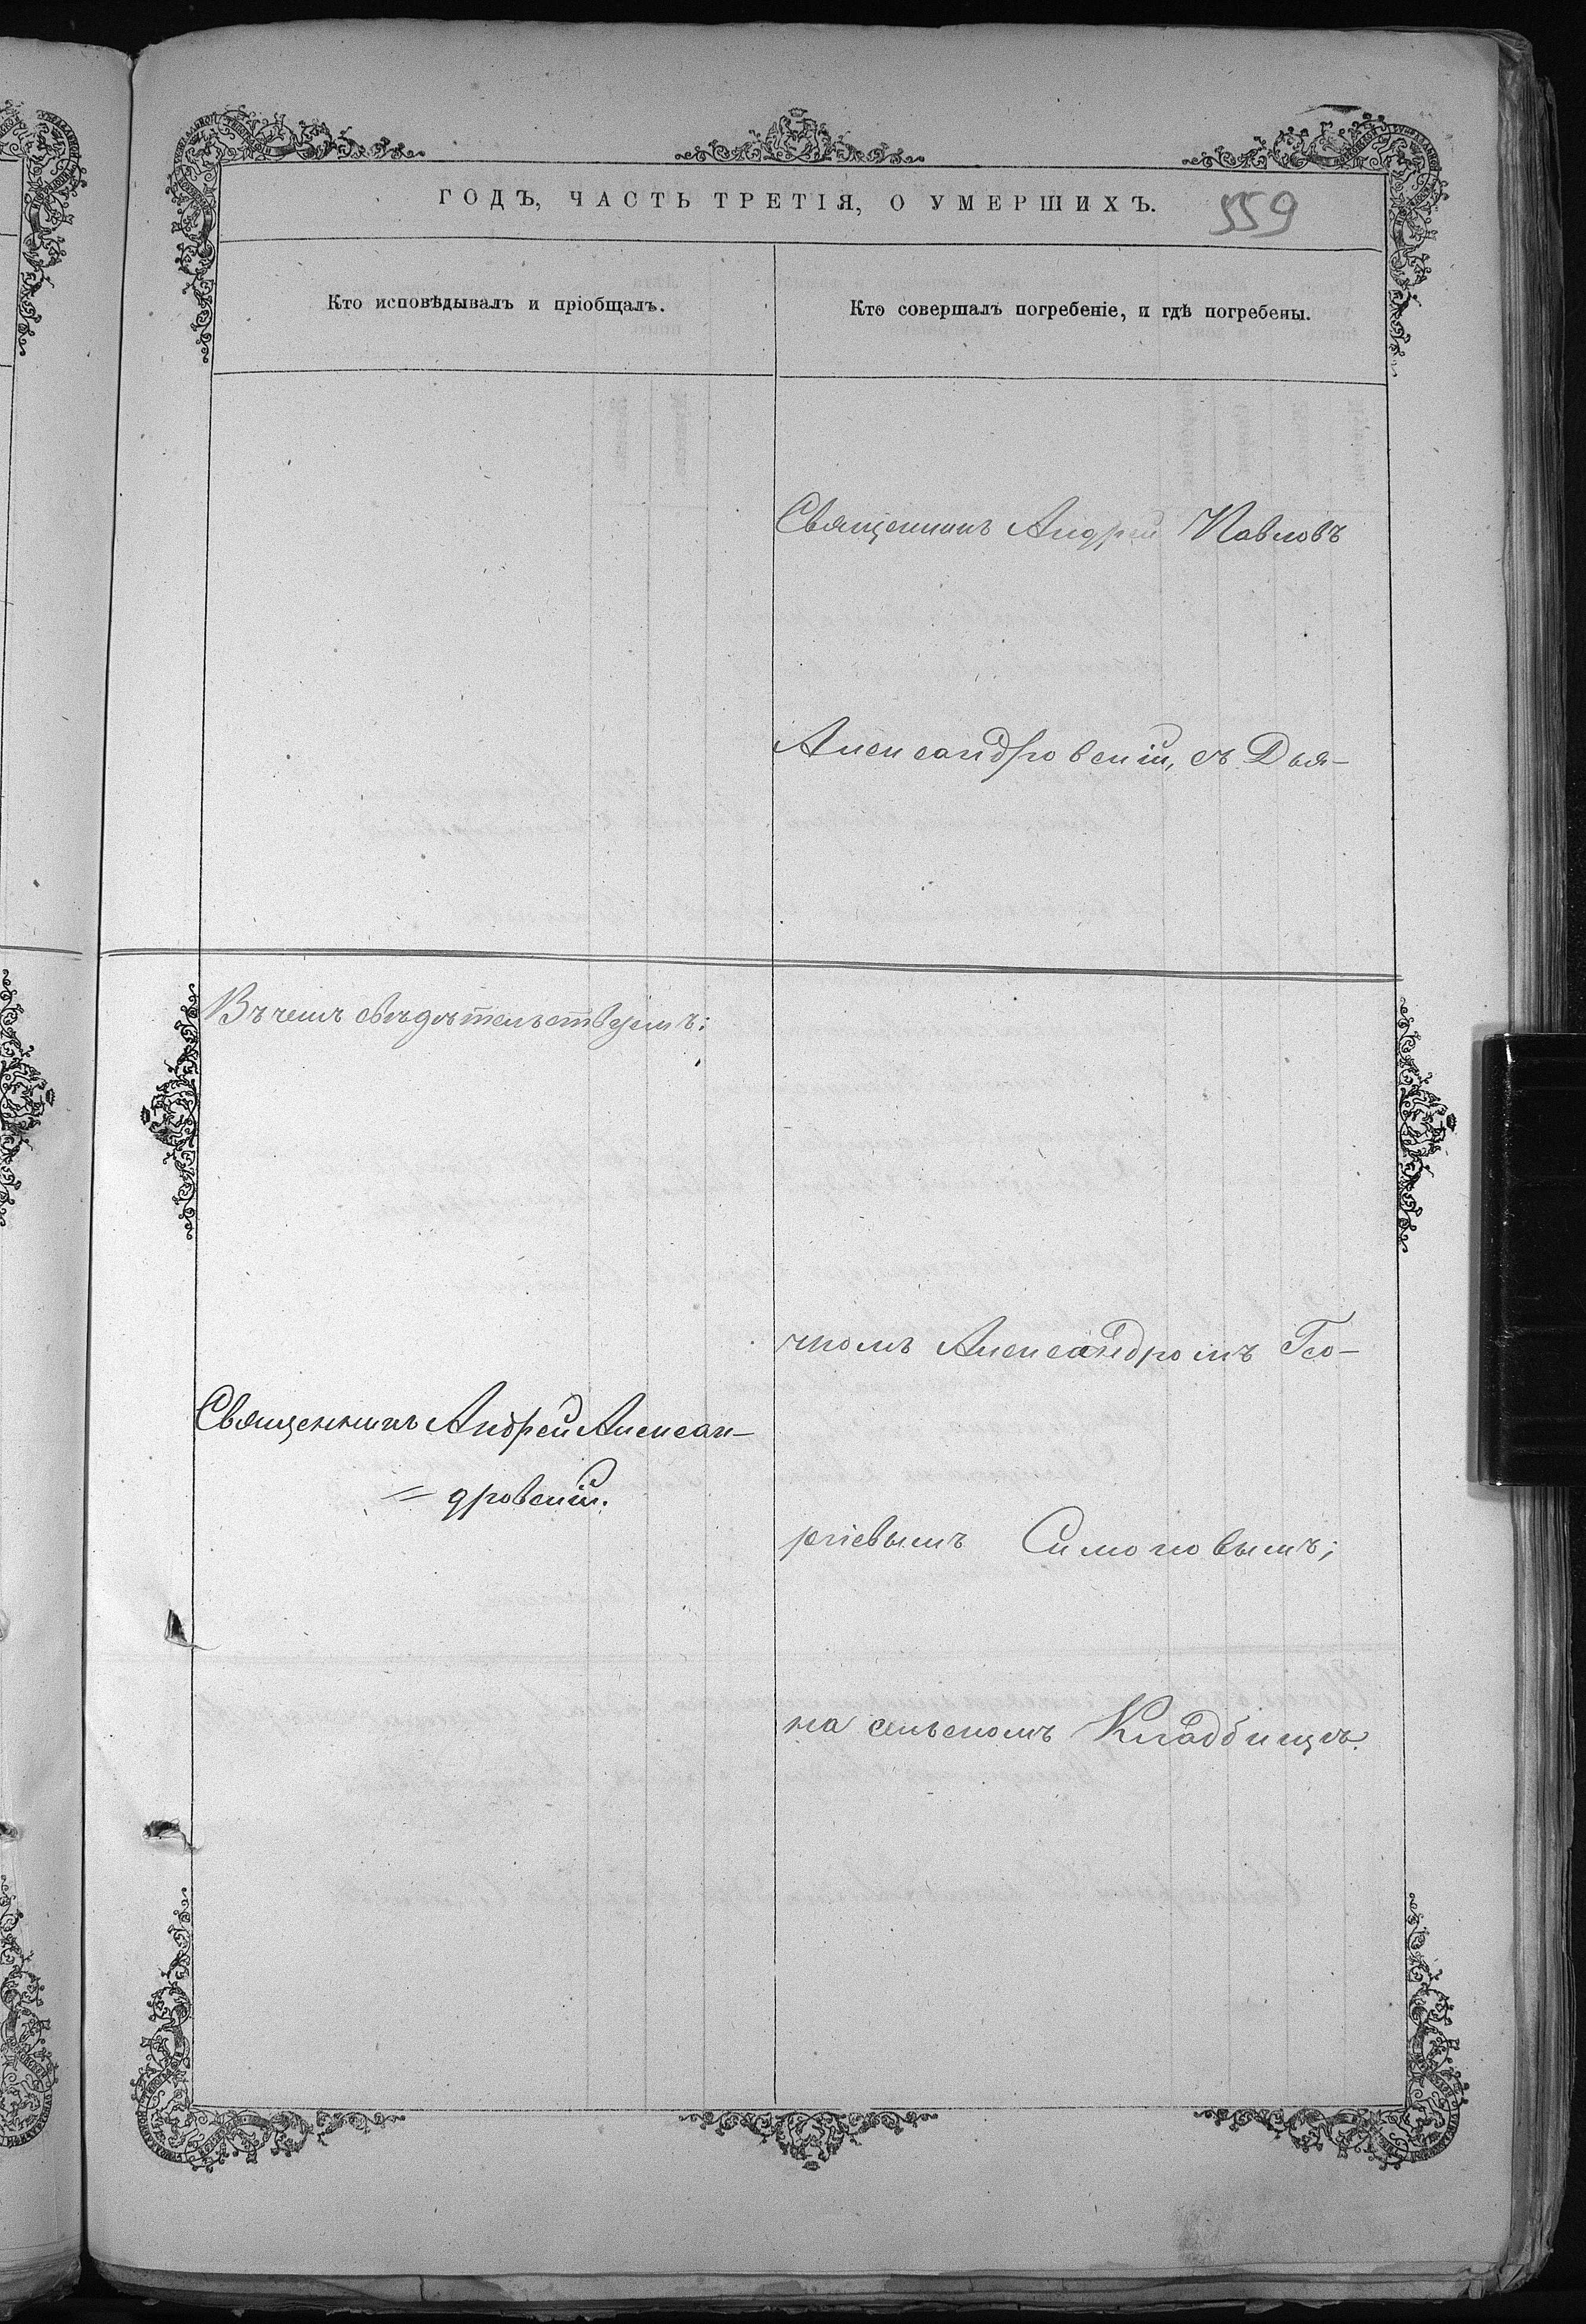 ГОДЪ, ЧАСТЬ ТРЕТІЯ, О УМЕРШИХЪ.
559
Кто исповѣдывалъ и пріобщалъ.
Кто совершалъ погребеніе, и гдѣ погребены.
Священникъ Андрей Павловъ
Александровскій, съ Дья-
Въ чемъ свѣдѣтельствуемъ:
чкомъ Александромъ Гео-
Священникъ Андрей Алексан-
= дровскій.
ргіевымъ Симоновымъ;
на сельскомъ Кладбищѣ.